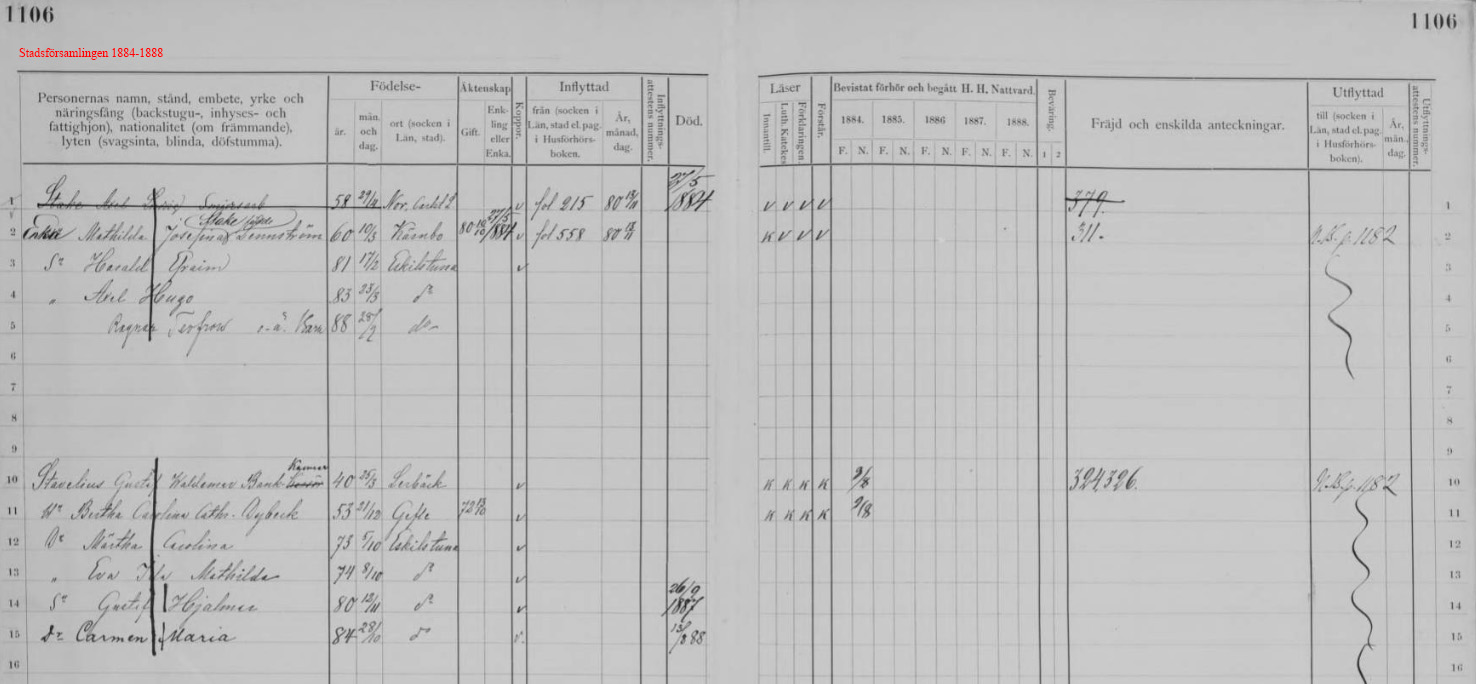 1106
1106
Stadsförsamlingen 1884-1888
Personernas namn, stånd, embete, yrke och
näringsfång (backstugu-, inhyses- och
fattighjon), nationalitet (om främmande),
lyten (svagsinta, blinda, döfstumma).
Födelse-
år.
mån.
och
dag.
ort (socken i
Län, stad).
Äktenskap
Gift.
Enk-
ling
eller
Enka.
Koppor.
Inflyttad
från (socken i
Län, stad el. pag.
i Husförhörs-
boken.
År,
månad,
dag.
Inflyttnings-
attestens nummer.
Död.
Läser
Innantill.
Luth. Katekes
Förklaringen.
Förstår.
Bevistat förhör och begått H. H. Nattvard.
1884. 1885. 1886 1887. 1888.
F. N. F. N. F. N. F. N. F. N.
Beväring.
1 2
Fräjd och enskilda anteckningar.
Utflyttad
till (socken i
Län, stad el. pag.
i Husförhörs-
boken).
År,
mån.,
dag.
Utflyttnings-
attestens nummer.
27/5
1 Stake Axel 58 29/11 Nor. v fol 215 80 1884 v v v v 379. 1
Stake
27/5
2 Enka Mathilda Josefina Tennström 60 10/3 Kärnbo 80 1884 v fol 558 80 K v v v 311. p. 1182 2
3 Sn Harald Efraim 81 17/2 Eskilstuna v 3
4 " Axel Hugo 83 23/3 do 4
5 Ragnar 88 28/2 do 5
6 6
7 7
8 8
9 9
Kamrer
10 Stavelius Gustaf Waldemar Bank 40 25/3 Lerbäck v K K K K 2/8 324.326. p. 1182 10
11 Hu Bertha Carolina Cath. Dybeck 53 21/12 Gefle 72 v K K K K 2/8 11
12 Dr Märtha Carolina 73 5/10 Eskilstuna v 12
13 " Eva Ida Mathilda 74 8/10 do v 13
26/9
14 Sn Gustaf Hjalmar 80 12/11 do v 1887 14
15 Dr Carmen Maria 84 28/10 do v. 88 15
16 16